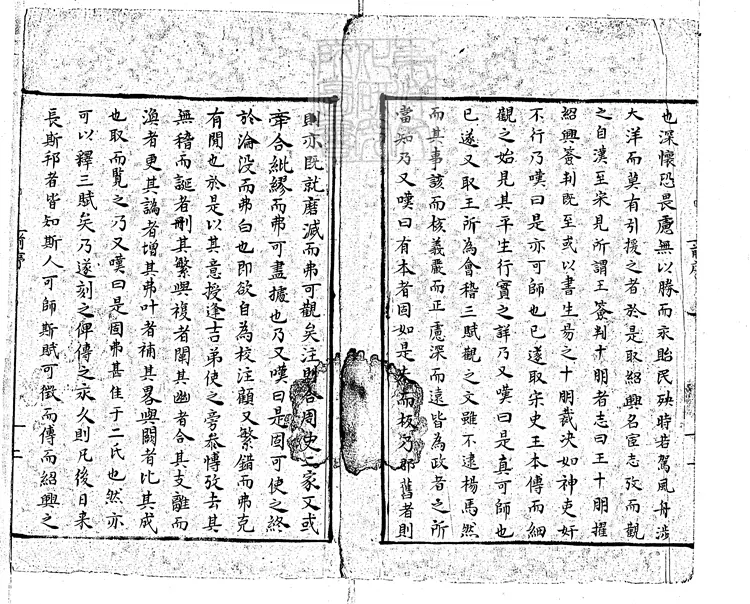 也深懷恐畏慮無以勝而永貽民殃時若駕風舟涉
大洋而莫有引援之者於是取紹興名宦志攷而觀
之自漢至宋見所謂王簽判十朋者志曰王十朋擢
紹興簽判既至或以書生易之十朋裁决如神吏奸
不行乃嘆曰是亦可師也已遂取宋史王本傳而細
觀之始見其平生行實之詳乃又嘆曰是真可師也
已遂又取王所為會稽三賦觀之文雖不逮楊馬然
而其事該而核義嚴而正慮深而遠皆為政者之所
當知乃又嘆曰有本者固如是 而板乃郡舊者則
則亦既就磨滅而弗可觀矣注則 周史二家文或
牽合紕繆而弗可盡據也乃又嘆曰是固可使之終
於淪没而弗白也即欲自為校注顧又繁錯而弗克
有閒也於是以其意授逢吉弟使之旁叅愽攷去其
無稽而誕者刪其繁與複者闡其幽者合其支離而
渙者更其譌者增其弗叶者補其畧與闕者比其成
也取而覽之乃又嘆曰是固弗甚隹于二氏也然亦
可以釋三賦矣乃遂刻之俾傳之永久則凡後日来
長斯邦者皆知斯人可師斯賦可徵而傳而紹興之